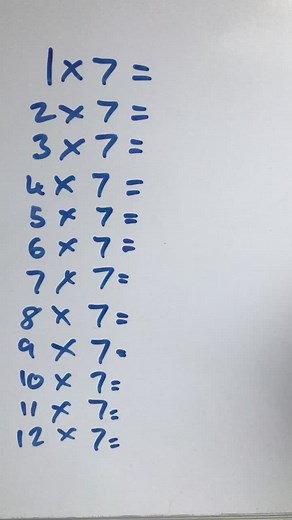 1 × 7 =
2 × 7 =
3 × 7 =
4 × 7 =
5 × 7 =
6 × 7 =
7 × 7=
8 × 7=
9 × 7=
10 × 7=
11 × 7=
12 × 7=